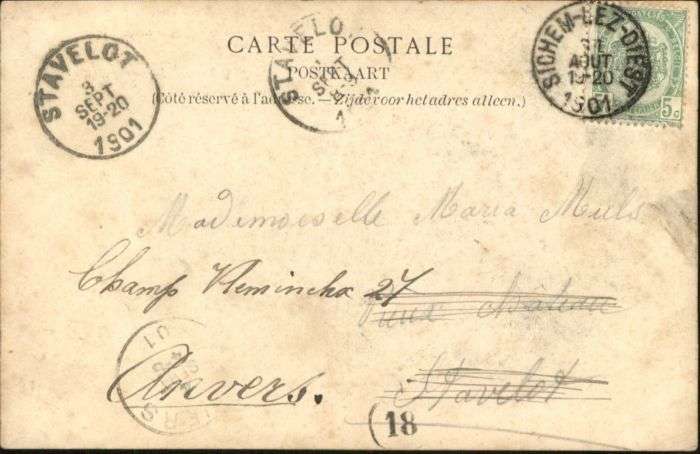 CARTE POSTALE
POSTKAART
(Côté réservé à l'adresse.—Zijde voor het adres alleen.)
STAVELOT
3
SEPT
19-20
1901
STAVELO
1
SEPT
SICHEM-LEZ-DIEST
31
AOUT
19-20
1901
5c
Mademoiselle Maria Muls
Champ 27
Anvers.
Stavelot
01
(18)